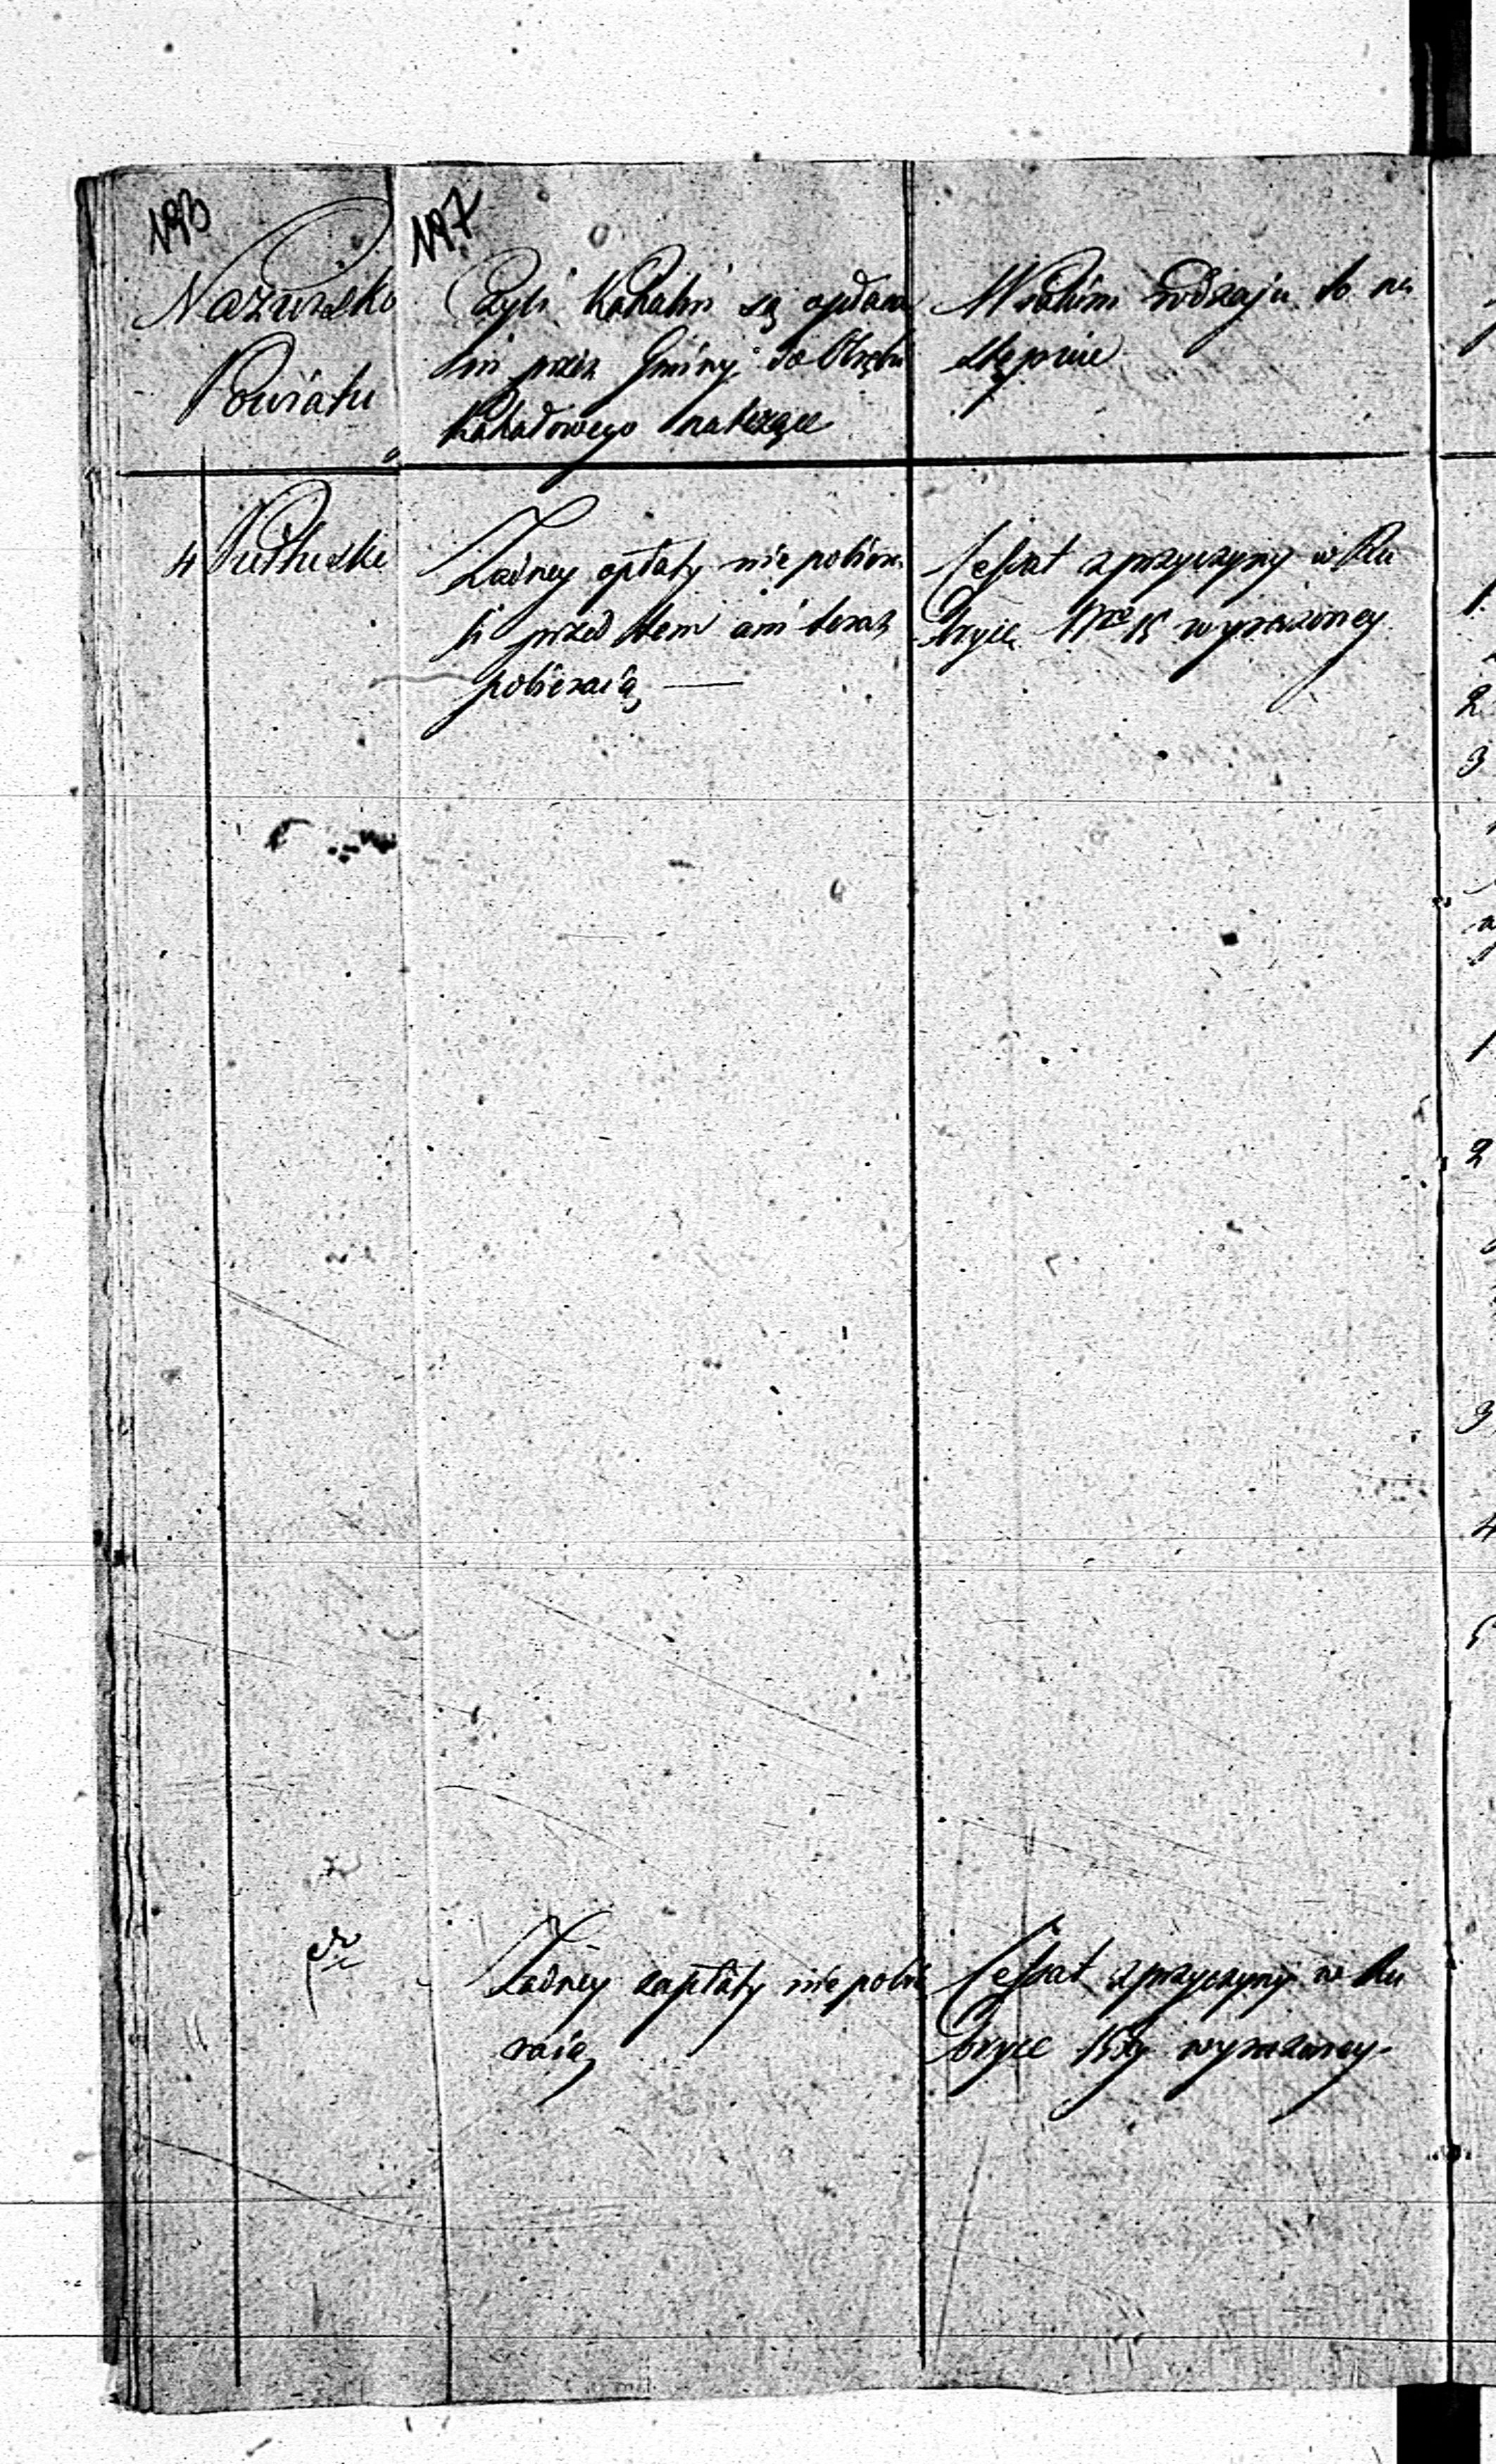 Nr 3
Nazwisko
Powiatu
Nr 7
Czyli Kahalni są opłaca
ni przez Gminy do Obrębu
Kahałowego należące
W takim rodzaju to na
stępuie
4 Pułtuski
Żadney opłaty nie pobiera
li przed tem ani teraz
pobieraią
Cessat z przyczyny w Ru
bryce Nro 15 wyrażoney
Żadney zapłaty nie pobie
raią
Cessat z przyczyny w Ru
bryce 15tey wyrażoney
1.
2
3
1
2
3
4
5